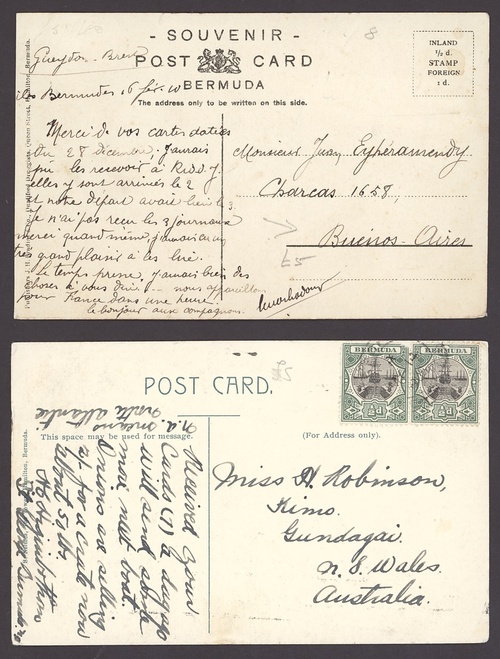 - SOUVENIR -
POST CARD
BERMUDA
The address only to be written on this side.
INLAND
½ d.
STAMP
FOREIGN
1 d.
8
Bermudes 16 fév. 10
Merci de vos cartes datées
du 28 décembre, j'aurais
pu les recevoir à
elles y sont arrivées le 2
et notre départ avait lieu le 3
Je n'ai pas reçu les 3 journaux
merci quand même, j'aurais eu un
très grand plaisir à les lire.
Le temps presse, j'aurais bien des
choses à vous dire - nous appareillons
pour France dans une heure.
le bonjour aux compagnons.
Monsieur Juan Eyhéramendy
Charcas 1658,
Buénos-Aires
£5
POST CARD.
This space may be used for message.
(For Address only).
BERMUDA
BERMUDA
Received your
Cards (7) a day ago
will send some
more next boat.
Onions are selling
at for a crate now
about 50 lbs.
N.A. means
North Atlantic
Miss H. Robinson,
Kimo.
Gundagai.
N. S. Wales.
Australia.